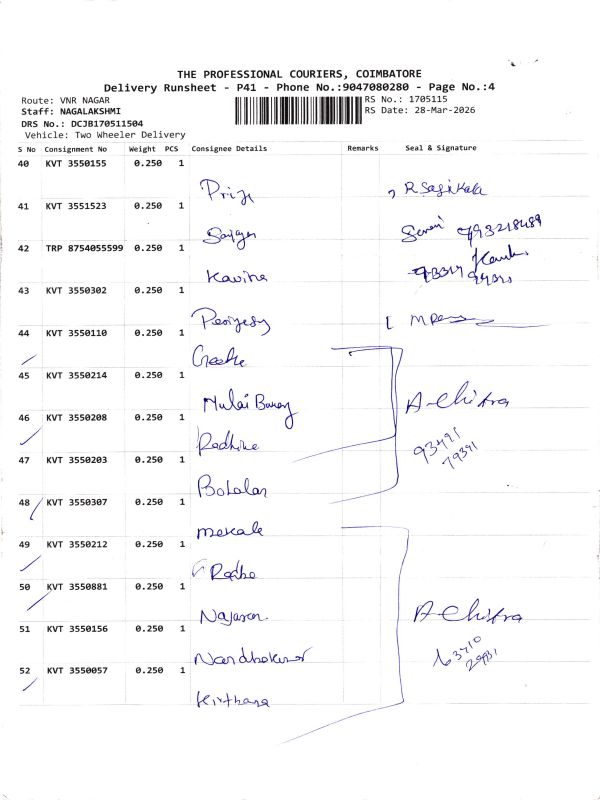 THE PROFESSIONAL COURIERS, COIMBATORE
Delivery Runsheet - P41 - Phone No.:9047080280 - Page No.:4
Route: VNR NAGAR
RS No.: 1705115
Staff: NAGALAKSHMI
RS Date: 28-Mar-2026
DRS No.: DCJB170511504
Vehicle: Two Wheeler Delivery
S No Consignment No Weight PCS Consignee Details Remarks Seal & Signature
40 KVT 3550155 0.250 1
Priya R Sasikala
41 KVT 3551523 0.250 1
42 TRP 8754055599 0.250 1
Kavina
43 KVT 3550302 0.250 1
44 KVT 3550110 0.250 1
Geetha
45 KVT 3550214 0.250 1
A-Chitra
46 KVT 3550208 0.250 1
93491
79391
47 KVT 3550203 0.250 1
48 KVT 3550307 0.250 1
49 KVT 3550212 0.250 1
50 KVT 3550881 0.250 1
A-Chitra
51 KVT 3550156 0.250 1
Nandhakumar
52 KVT 3550057 0.250 1
Kirthana